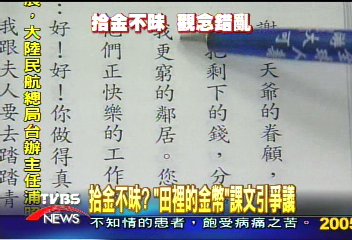 拾金不昧 觀念錯亂
謝
天爺的眷顧，
把剩下的錢，分
我更窮的鄰居。您
們正快樂的工作
好！好！你做得真
我跟夫人要去踏踏青
，大陸民航總局台辦主任浦
拾金不昧？"田裡的金幣"課文引爭議
TVBS
NEWS
不知情的患者，飽受病痛之苦。 2005